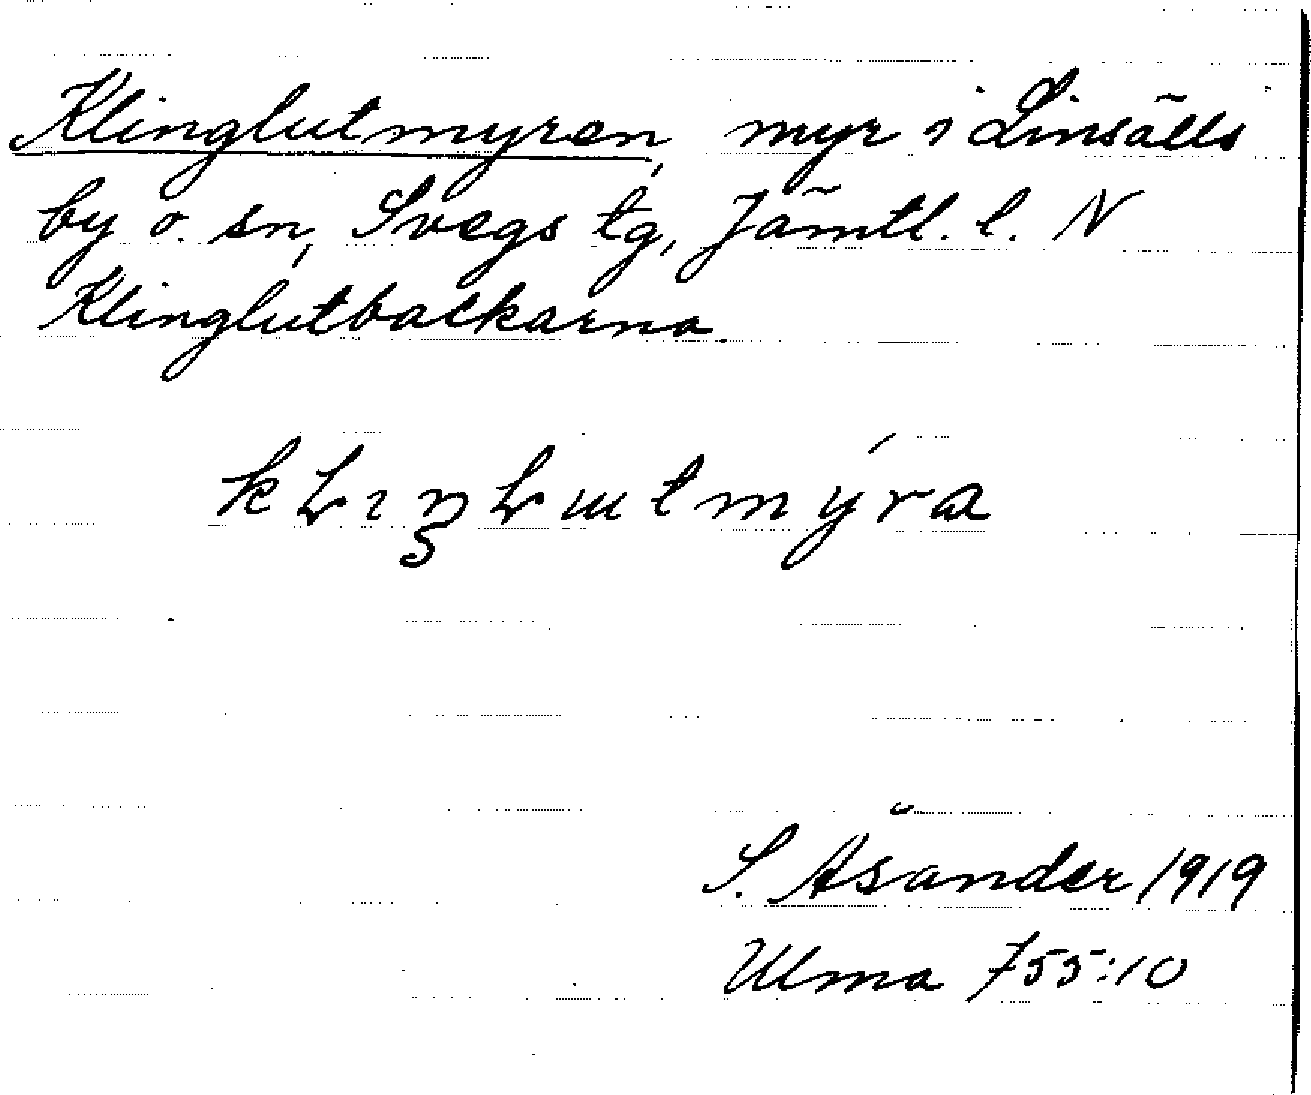 Klinglutmyren, myr i Linsälls
by o. sn, Svegs tg, Jämtl. l. N
Klinglutbackarna.
S. Åsander 1919
Ulma 755:10